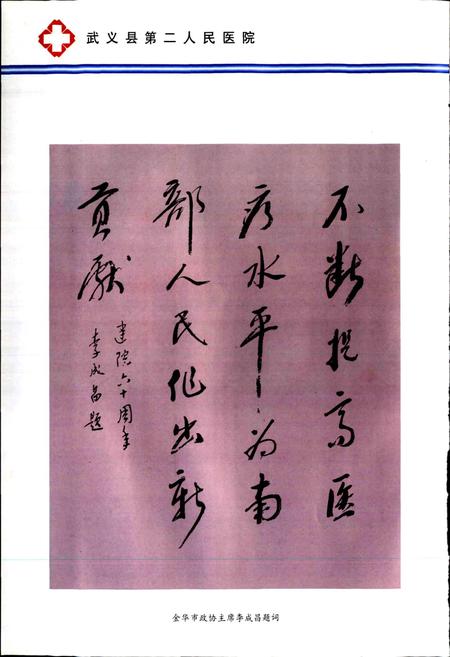 武义县第二人民医院
不断提高医
疗水平为南
部人民作出新
贡献
建院六十周年
李成昌题
金华市政协主席李成昌题词